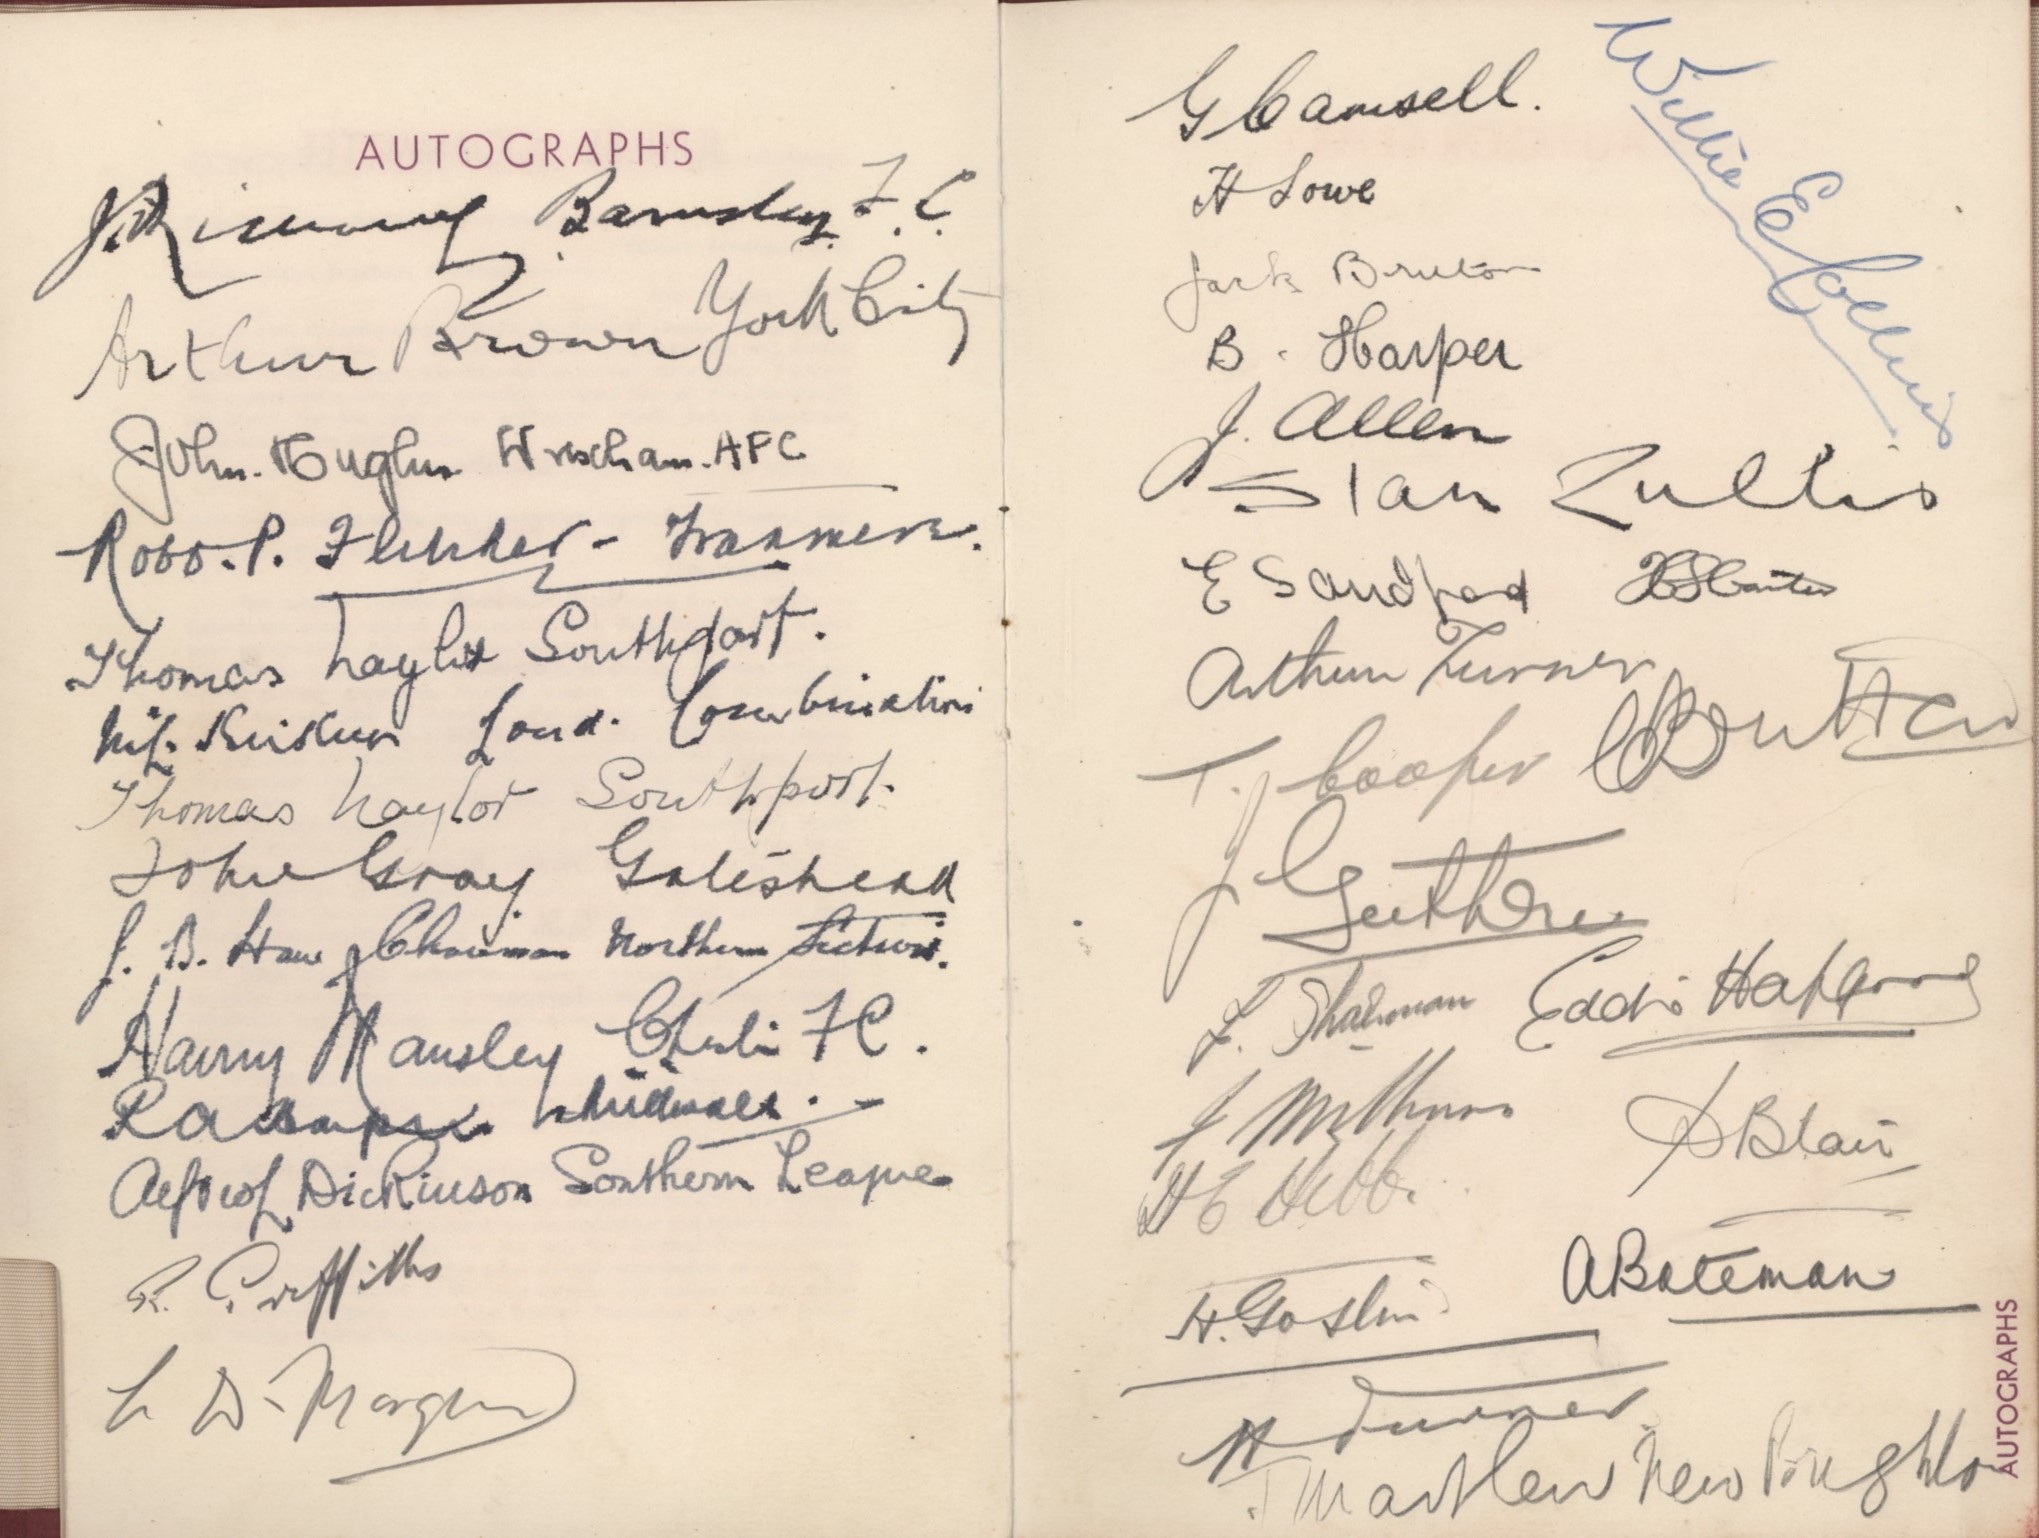 AUTOGRAPHS
Barnsley F.C.
Arthur Brown York City
John. Hughes Wrexham. AFC
Robt. P. Fletcher - Tranmere.
Thomas Naylor Southport.
Lond. Combination
Thomas Naylor Southport.
John Gray Gateshead
J. B. Haw Chairman Northern Section.
Harry Mansley Chester F C.
Millwall.
Alfred Dickinson Southern League
R. Griffiths
D. Morgan
G Camsell.
Willie E Collins
H Lowe
Jack Bruton
B. Harper
J. Allen
Stan Cullis
E Sandford HS Carter
Arthur Turner
C Britton
T. Cooper
J Guthrie
Eddie Hapgood
D Blair
H E Hebb.
A Bateman
H. Goslin
H Turner
T Martlew New Brighton
AUTOGRAPHS